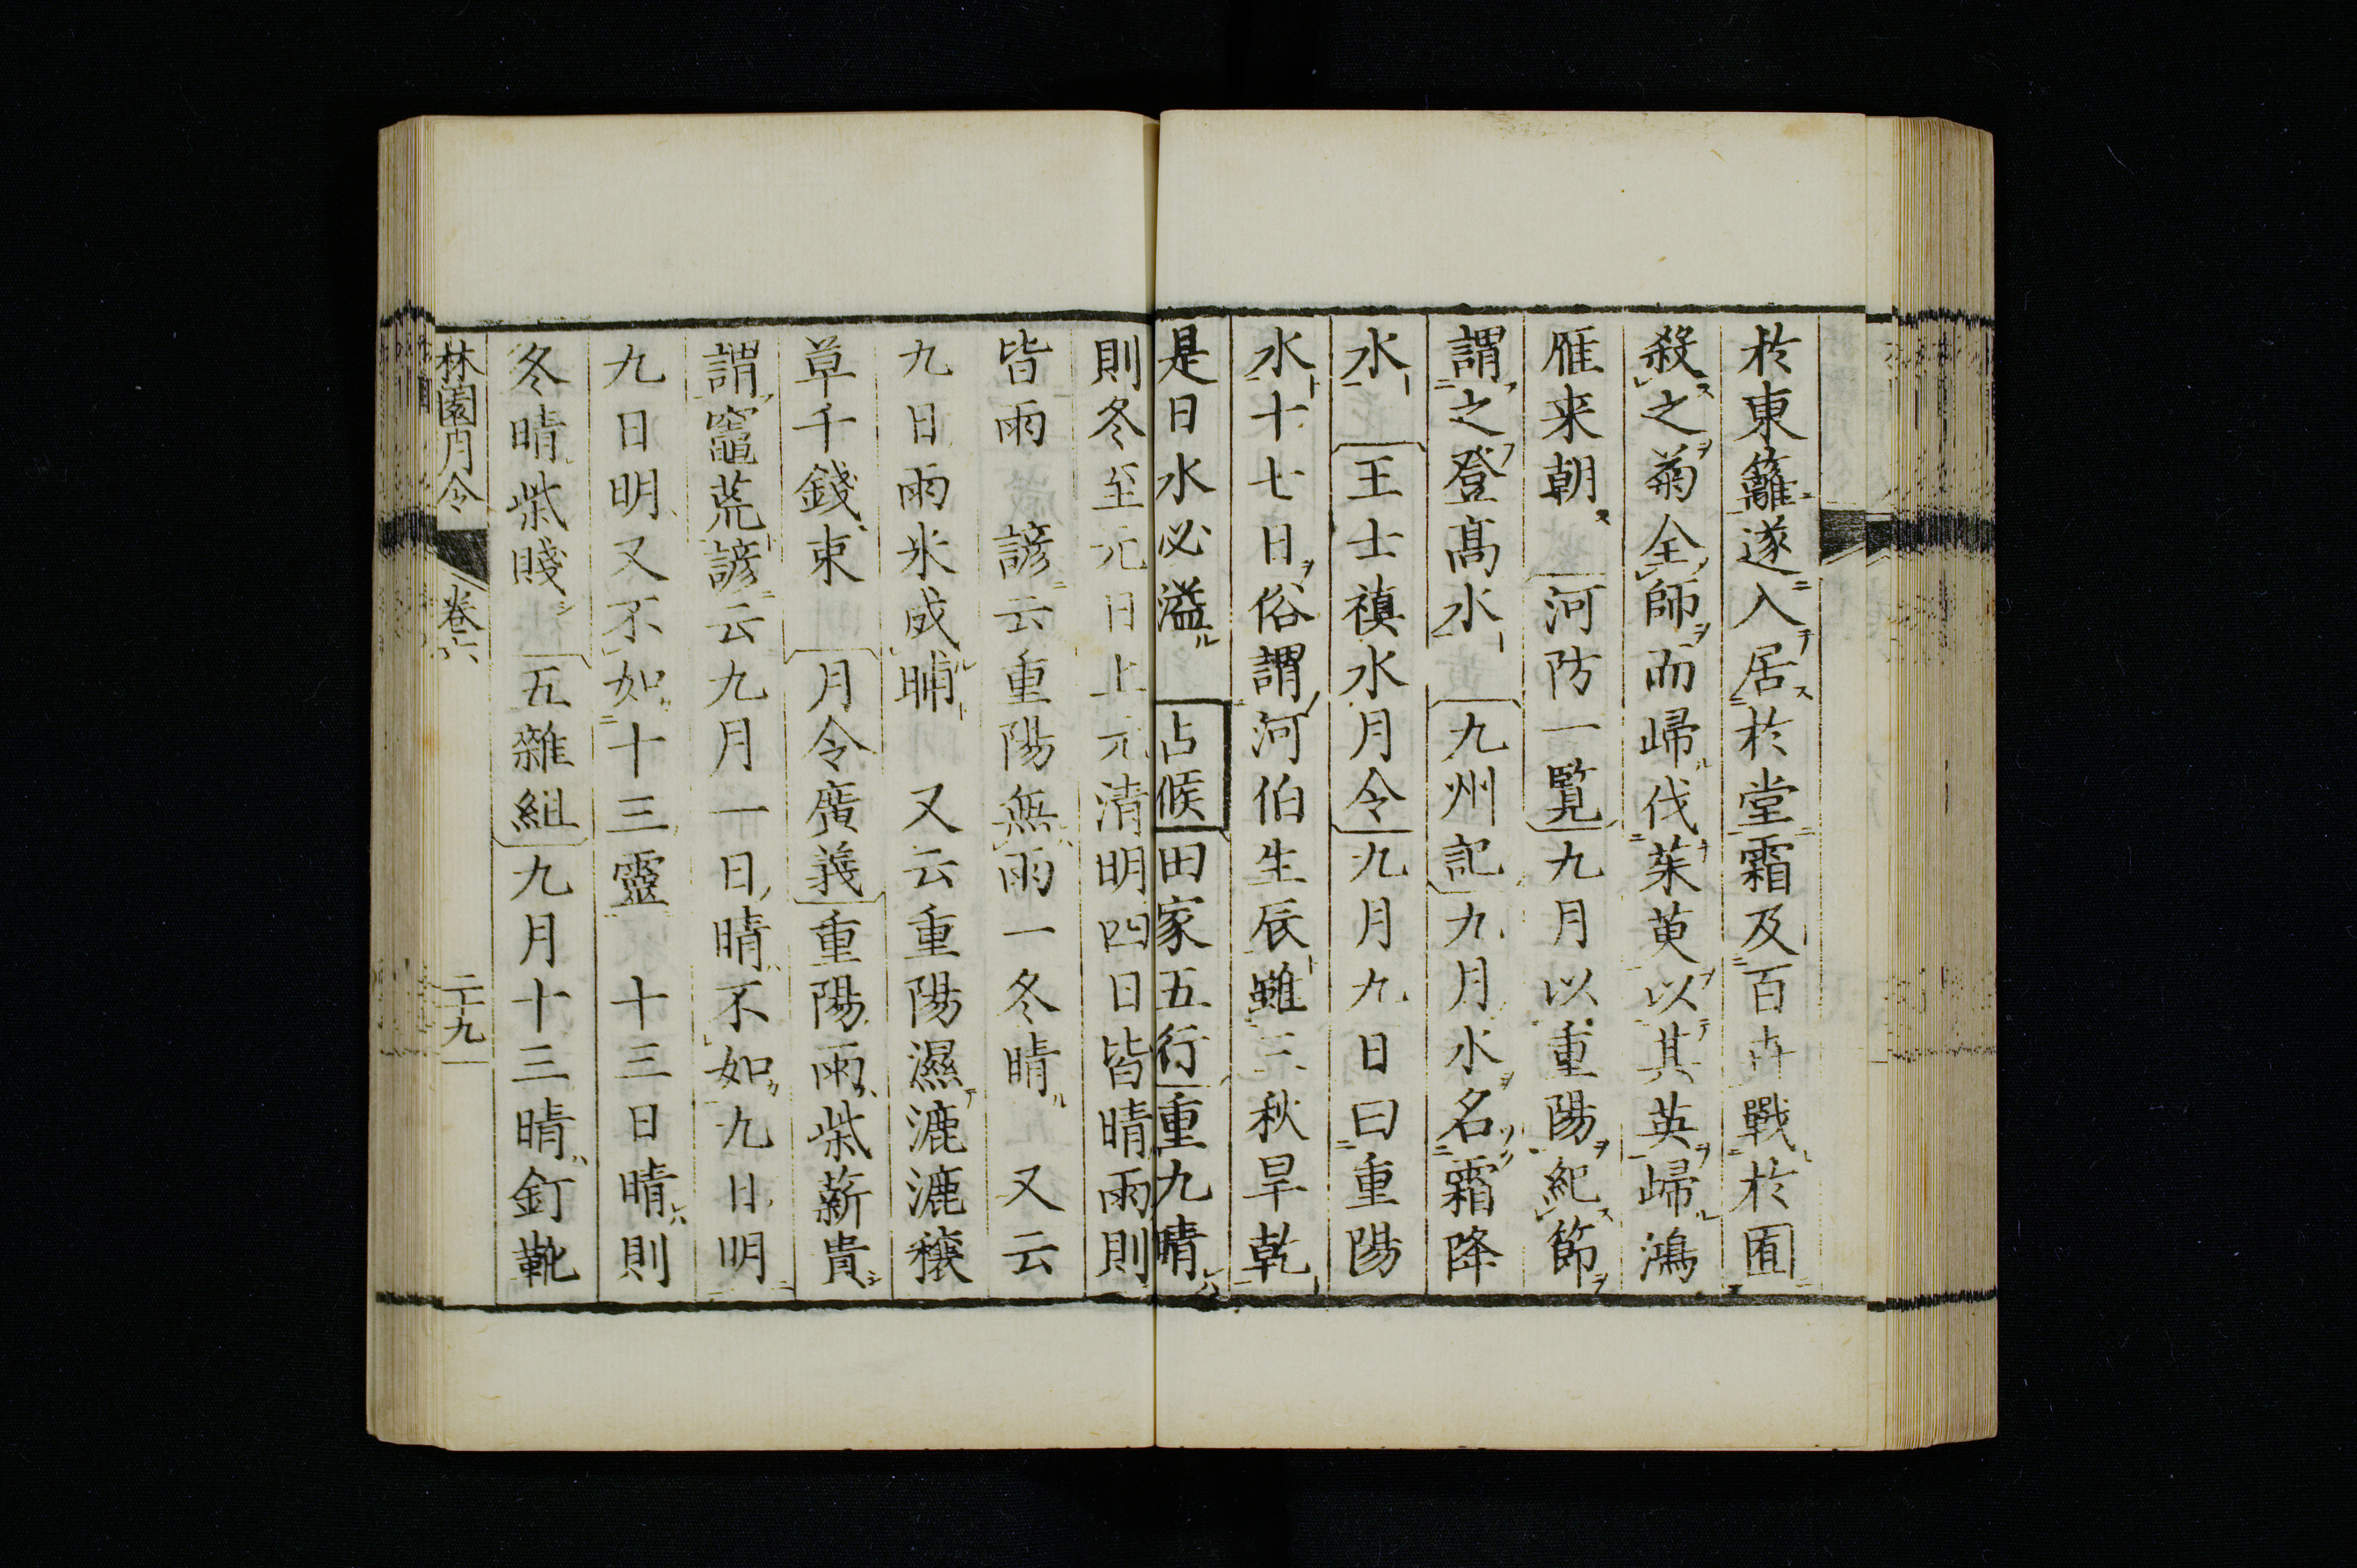 於東籬遂入居於堂霜及百卉戰於囿
殺之菊全師而歸伐茱萸以其英歸鴻
雁来朝 河防一覧 九月以重陽紀節
謂之登高水 九州記 九月水名霜降
水 王士禛水月令 九月九日曰重陽
水十七日俗謂河伯生辰雖三秋旱乾
是日水必溢 占候 田家五行 重九晴
則冬至元日上元清明四日皆晴雨則
皆雨 諺云重陽無雨一冬晴 又云
九日雨米成脯 又云重陽濕漉漉穰
草千錢束 月令廣義 重陽雨柴薪貴
謂竈荒諺云九月一日晴不如九日明
九日明又不如十三靈 十三日晴則
冬晴柴賤 五雜組 九月十三晴釘靴
林園月令 卷六 二十九